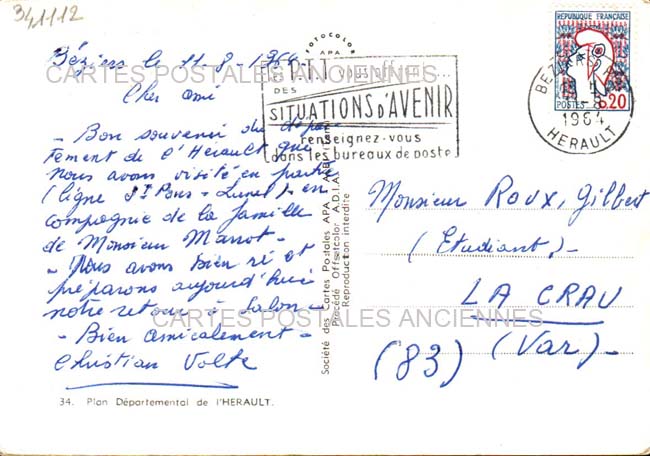 341112
Béziers le 11-8-1964
Cher ami
- Bon souvenir du dépar
tement de l'Hérault que
nous avons visité en partie
(ligne St Pons - Lunel) en
compagnie de la famille
de Monsieur Marrot -
- Nous avons bien ri et
préparons aujourd'hui
notre retour à Salon -
- Bien amicalement -
Christian Volte
34. Plan Départemental de l'HERAULT.
FOTOCOLOR
APA
Société des Cartes Postales APA
Procédé Offsetcolor A.D.I.A.
Reproduction interdite
P.T.T. vous
DES
SITUATIONS D'AVENIR
renseignez-vous
dans les bureaux de poste
REPUBLIQUE FRANÇAISE
POSTES
0,20
BEZIERS
1964
HERAULT
Monsieur Roux, Gilbert
(Etudiant) -
LA CRAU
(83) (Var) -
CARTES POSTALES ANCIENNES
CARTES POSTALES ANCIENNES